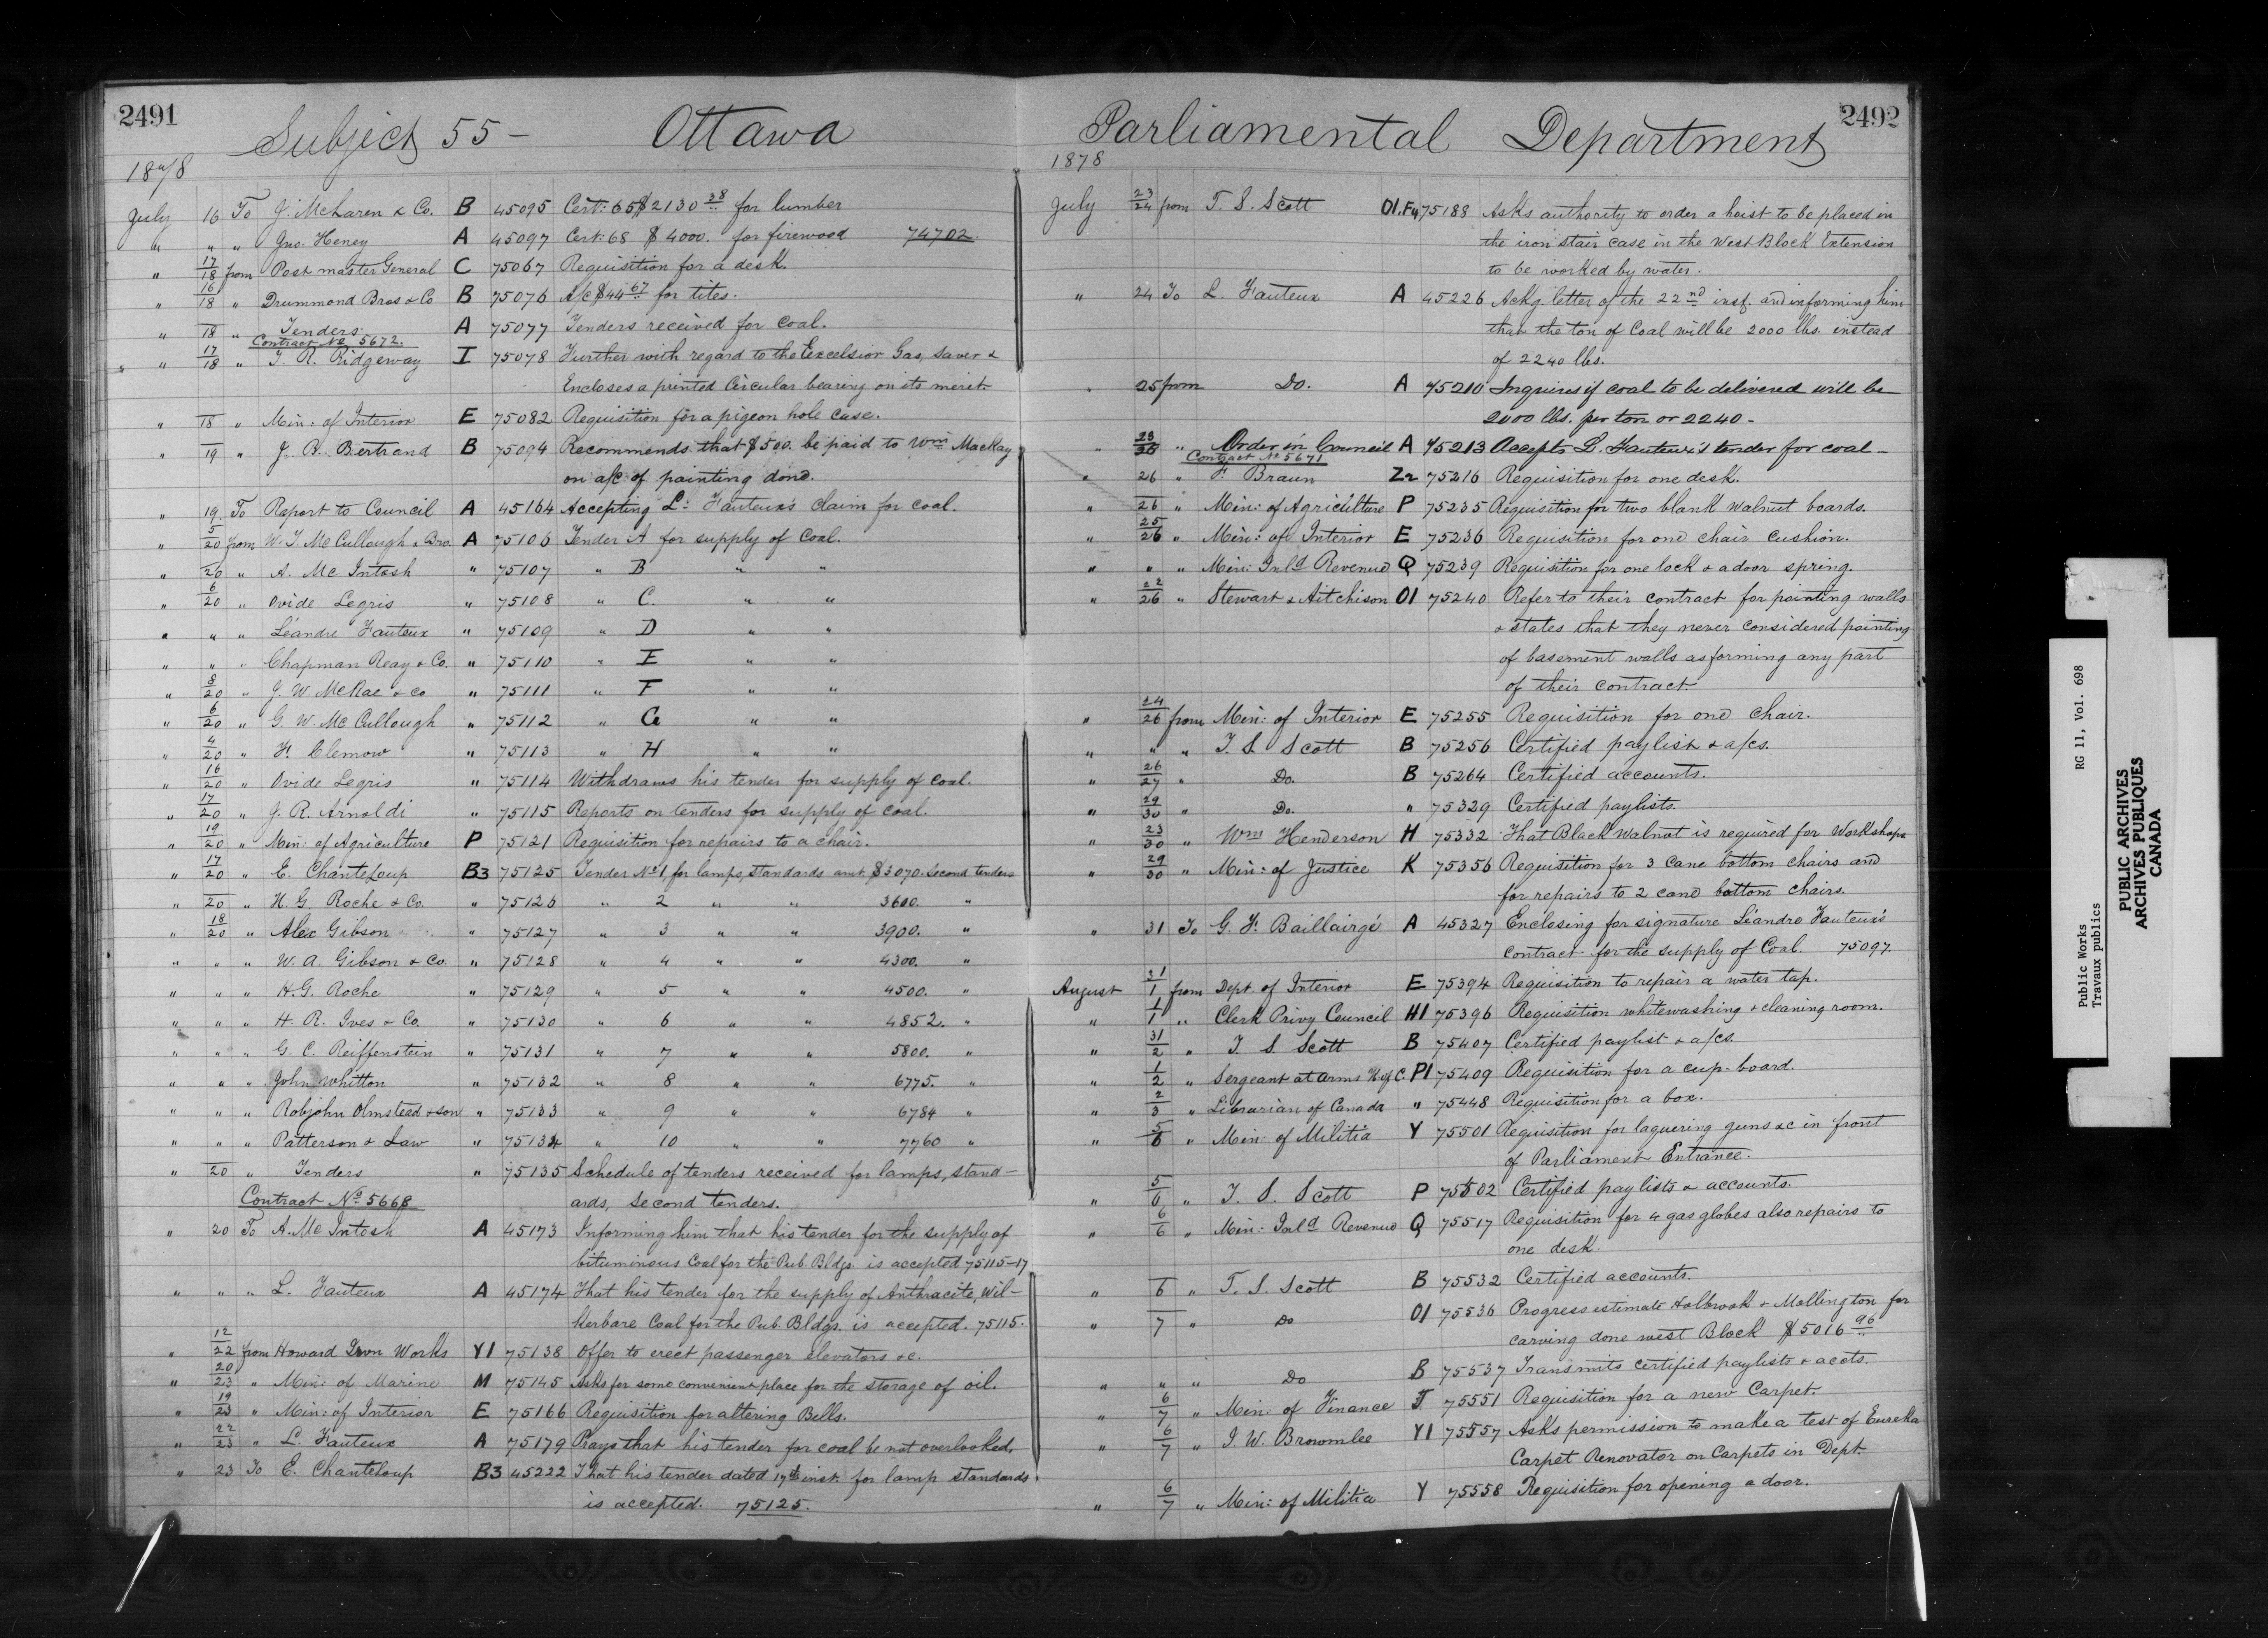 2491
Subject 55 - Ottawa
1878
July 16 To J. McLaren & Co. B 45095 Cert: 65 $2130 38 for lumber
" " " Jno. Heney A 45097 Cert: 68 $4000. for firewood 74702
" 17/18 from Post master General C 75067 Requisition for a desk.
" 16/18 " Drummond Bros & Co B 75076 A/c $44 67 for tiles.
" 18 " Tenders A 75077 Tenders received for coal.
Contract No 5672.
" 17/18 " T. R. Ridgeway I 75078 Further with regard to the Excelsior Gas, Saver &
Encloses a printed Circular bearing on its merit
" 18 " Min: of Interior E 75082 Requisition for a pigeon hole case.
" 19 " J. B. Bertrand B 75094 Recommends that $500. be paid to Wm MacKay
on a/c of painting done.
" 19 To Report to Council A 45164 Accepting L: Fauteux's claim for coal.
" 5/20 from W. J. McCullough & Bro. A 75106 Tender A for supply of Coal.
" 20 " A. McIntosh " 75107 " B " "
" 6/20 " Ovide Legris " 75108 " C. " "
" " " Léandre Fauteux " 75109 " D " "
" " " Chapman Reay & Co. " 75110 " E " "
" 8/20 " J. W. McRae & Co " 75111 " F " "
" 6/20 " G. W. McCullough " 75112 " G " "
" 4/20 " F. Clemow " 75113 " H " "
" 16/20 " Ovide Legris " 75114 Withdraws his tender for supply of coal.
" 17/20 " J. R. Arnoldi " 75115 Reports on tenders for supply of coal.
" 19/20 " Min: of Agriculture P 75121 Requisition for repairs to a chair.
" 17/20 " E. ChanteLoup B3 75125 Tender No 1 for lamps, standards amt. $3070. Second tenders
" 20 " H. G. Roche & Co. " 75126 " 2 " " 3600. "
" 18/20 " Alex Gibson " 75127 " 3 " " 3900. "
" " " W. A. Gibson & Co. " 75128 " 4 " " 4300. "
" " " H. G. Roche " 75129 " 5 " " 4500. "
" " " H. R. Ives & Co. " 75130 " 6 " " 4852. "
" " " G. C. Reiffenstein " 75131 " 7 " " 5800. "
" " " John Whitton " 75132 " 8 " " 6775. "
" " " Robjohn Olmstead & son " 75133 " 9 " " 6784 "
" " " Patterson & Law " 75134 " 10 " " 7760 "
" 20 " Tenders " 75135 Schedule of tenders received for lamps, stand-
Contract No 5668 ards, second tenders.
" 20 To A. McIntosh A 45173 Informing him that his tender for the supply of
bituminous Coal for the Pub. Bldgs. is accepted 75115-17
" " " L. Fauteux A 45174 That his tender for the supply of Anthracite, Wil-
kerbare Coal for the Pub. Bldgs. is accepted. 75115.
" 12/22 from Howard Iron Works Y1 75138 Offer to erect passenger elevators &c.
" 20/23 " Min: of Marine M 75145 Asks for some convenient place for the storage of oil.
" 19/23 " Min: of Interior E 75166 Requisition for altering Bells.
" 22/23 " L. Fauteux A 75179 Prays that his tender for coal be not overlooked.
" 23 To E. Chanteloup B3 45222 That his tender dated 17th inst. for lamp standards
is accepted. 75125.
2492
Parliamental Department
1878
July 23/24 from T. S. Scott O1.F4 75188 Asks authority to order a hoist to be placed in
the iron stair case in the West Block Extension
to be worked by water.
" 24 To L. Fauteux A 45226 Ackg. letter of the 22nd inst. and informing him
that the ton of Coal will be 2000 lbs. instead
of 2240 lbs.
" 25 from Do. A 75210 Inquires if coal to be delivered will be
2000 lbs. per ton or 2240 -
" " Order in Council A 75213 Accepts L. Fauteux's tender for coal -
Contract No 5671
" 26 " F. Braun Z2 75216 Requisition for one desk.
" 26 " Min: of Agriculture P 75235 Requisition for two blank walnut boards.
" 25/26 " Min: of Interior E 75236 Requisition for one chair cushion.
" " " Min: Inld Revenue Q 75239 Requisition for one lock & a door spring.
" 22/26 " Stewart & Aitchison O1 75240 Refer to their contract for painting walls
& states that they never considered painting
of basement walls as forming any part
of their contract.
" 24/26 from Min: of Interior E 75255 Requisition for one chair.
" " " T. S. Scott B 75256 Certified paylist & a/cs.
" 26/27 " Do. B 75264 Certified accounts.
" 29/30 " Do. " 75329 Certified paylists.
" 23/30 " Wm Henderson H 75332 That Black Walnut is required for Workshops
" 29/30 " Min: of Justice K 75356 Requisition for 3 cane bottom chairs and
for repairs to 2 cane bottom chairs.
" 31 To G. F. Baillairgé A 45327 Enclosing for signature Léandre Fauteux's
contract for the supply of Coal. 75097.
August 21/1 from Dept. of Interior E 75394 Requisition to repair a water tap.
" 1/1 " Clerk Privy Council H1 75396 Requisition whitewashing & cleaning room.
" 31/2 " T. S. Scott B 75407 Certified paylist & a/cs.
" 1/2 " Sergeant at arms H of C. P1 75409 Requisition for a cup-board.
" 2/3 " Librarian of Canada " 75448 Requisition for a box.
" 5/6 " Min: of Militia Y 75501 Requisition for laquering guns &c in front
of Parliament Entrance.
" 5/6 " T. S. Scott P 75502 Certified paylists & accounts.
" 6/6 " Min: Inld Revenue Q 75517 Requisition for 4 gas globes also repairs to
one desk.
" 6 " T. S. Scott B 75532 Certified accounts.
" 7 " Do O1 75536 Progress estimate Holbrook & Mollington for
carving done west Block $5016 96
" " " Do B 75537 Transmits certified paylists & accts.
" 6/7 " Min: of Finance J 75551 Requisition for a new Carpet.
" 6/7 " J. W. Brownlee Y1 75557 Asks permission to make a test of Eureka
Carpet Renovator on Carpets in Dept.
" 6/7 " Min: of Militia Y 75558 Requisition for opening a door.
Public Works RG 11, Vol. 698
Travaux publics
PUBLIC ARCHIVES
ARCHIVES PUBLIQUES
CANADA